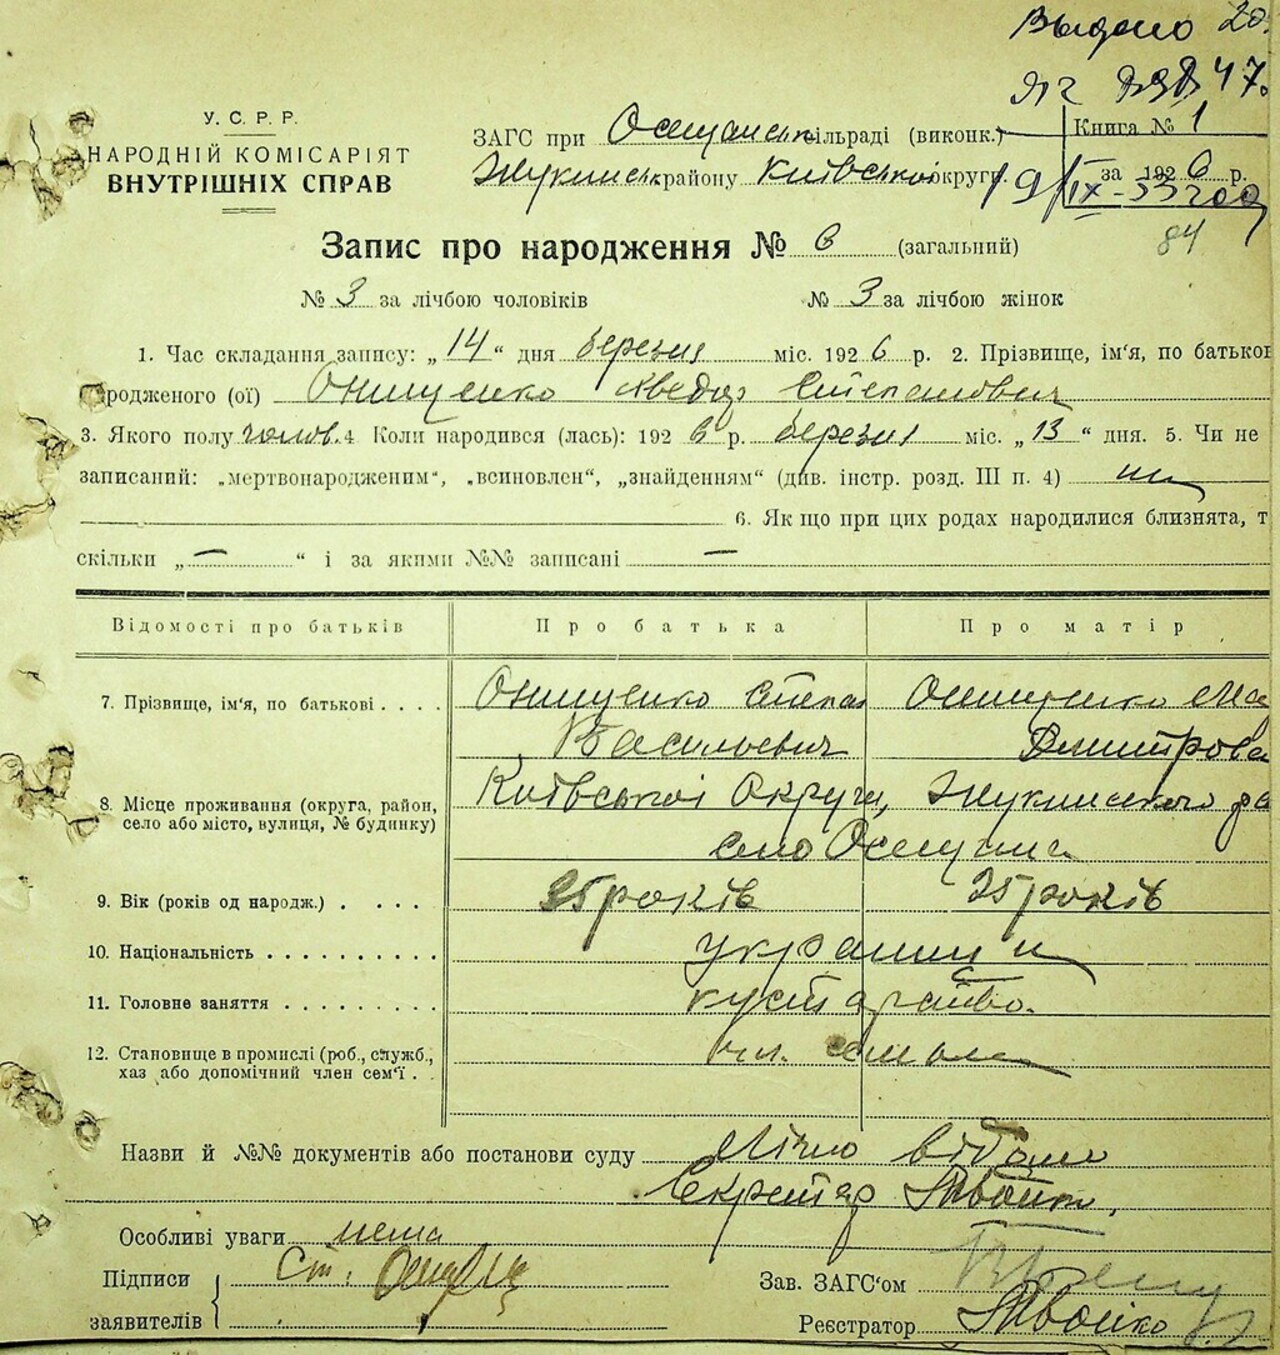 Выдано 20.
У. С. Р. Р.
НАРОДНІЙ КОМІСАРІЯТ
ВНУТРІШНІХ СПРАВ
ЗАГС при Осещанськ сільраді (виконк.)
Жукинськ району Київської округи.
Книга № 1
за 1926 р.
19/IX-33
84
Запис про народження № 6 (загальний)
№ 3 за лічбою чоловіків № 3 за лічбою жінок
1. Час складання запису: „14“ дня березня міс. 1926 р. 2. Прізвище, ім'я, по батькові
родженого (ої) Онищенко Хведор Степанович
3. Якого полу чолов. 4 Коли народився (лась): 1926 р. березня міс. „13“ дня. 5. Чи не
записаний: „мертвонародженим“, „всиновлен“, „знайденням“ (див. інстр. розд. III п. 4) ні
6. Як що при цих родах народилися близнята, т
скільки „—“ і за якими №№ записані —
Відомості про батьків Про батька Про матір
7. Прізвище, ім'я, по батькові . . . . Онищенко Степан Онищенко
Васильевич Дмитрова
8. Місце проживання (округа, район, Київської Округи, Жукинського ра
село або місто, вулиця, № будинку) село Осещина
9. Вік (років од народж.) . . . . 25 років 25 років
10. Національність . . . . . . . . . . українці
11. Головне заняття . . . . . . . . . кустарство.
12. Становище в промислі (роб., служб.,
хаз або допомічний член сем'ї . .
Назви й №№ документів або постанови суду Лічно відомі
Секретар Авойко.
Особливі уваги нема
Підписи Ст. Онищ
заявителів
Зав. ЗАГС'ом
Реєстратор